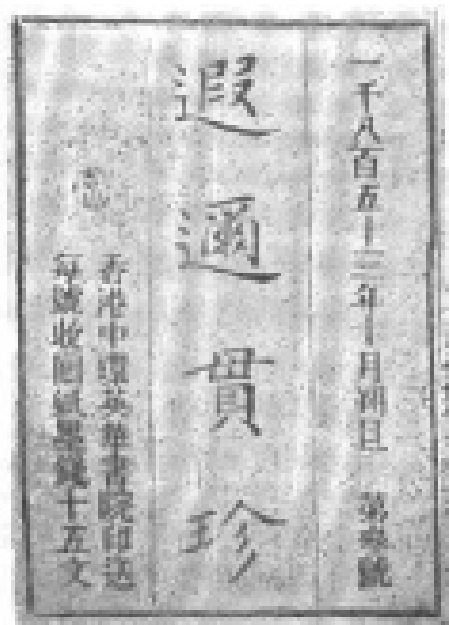 一千八百五十三年十月朔旦 第參號
遐邇貫珍
香港中環英華書院印送
每號收回紙墨錢十五文